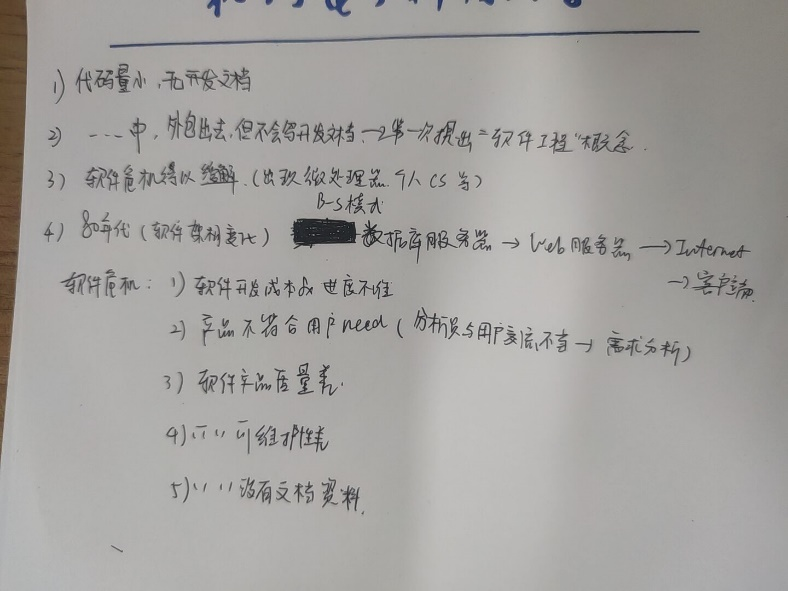 1) 代码量小，无开发文档
2) ……中，外包出去，但不会写开发文档。→第一次提出"软件工程"概念.
3) 软件危机得以缓解.（出现微处理器.个人CS等）
B-S模式
4) 80年代（软件架构变化） 数据库服务器 → Web服务器 → Internet
→客户端.
软件危机：1) 软件开发成本及进度不准
2) 产品不符合用户need（分析员与用户交流不当→需求分析）
3) 软件产品质量差.
4) 〃 〃 可维护性差
5) 〃 〃 没有文档资料.